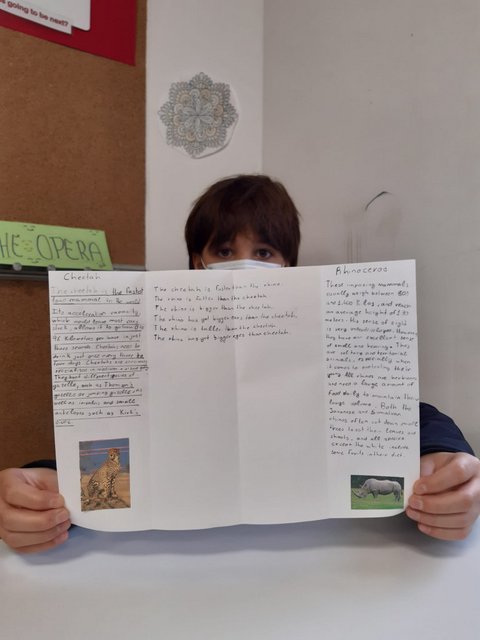 is going to be next?
HE OPERA
Cheetah
The cheetah is the fastest
four-mammal in the world
Its acceleration capacity,
which would leave most cars
stuck, allows it to go from 0 to
96 Kilometers per hour in just
three seconds. Cheetahs need to
drink just once every three to
four days. Cheetahs are
They hunt different species of
gazelle, such as Thomson's
gazelle or jumping gazelle as
well as impalas and small
antelopes such as Kirk's
The cheetah is faster than the rhino.
The rhino is fatter than the cheetah
The rhino is bigger than the cheetah.
The rhino has got bigger ears than the cheetah.
The rhino is taller than the cheetah.
The rhino has got bigger eyes than cheetah.
Rhinoceros
These imposing mammals
usually weigh between 800
and 1,400 Kilos, and reach
an average height of
meters. The sense of sight
is very
they have an excellent sense
of smell and hearing. They
are solitary and territorial
animals, especially when
it comes to protecting their
All rhinos are herbivores
and need a large amount of
food daily to maintain their
large volume. Both the
Javanese and Sumatran
rhinos often cut down small
trees to eat their leaves and
shoots, and all species
except the white include
some fruits in their diet.